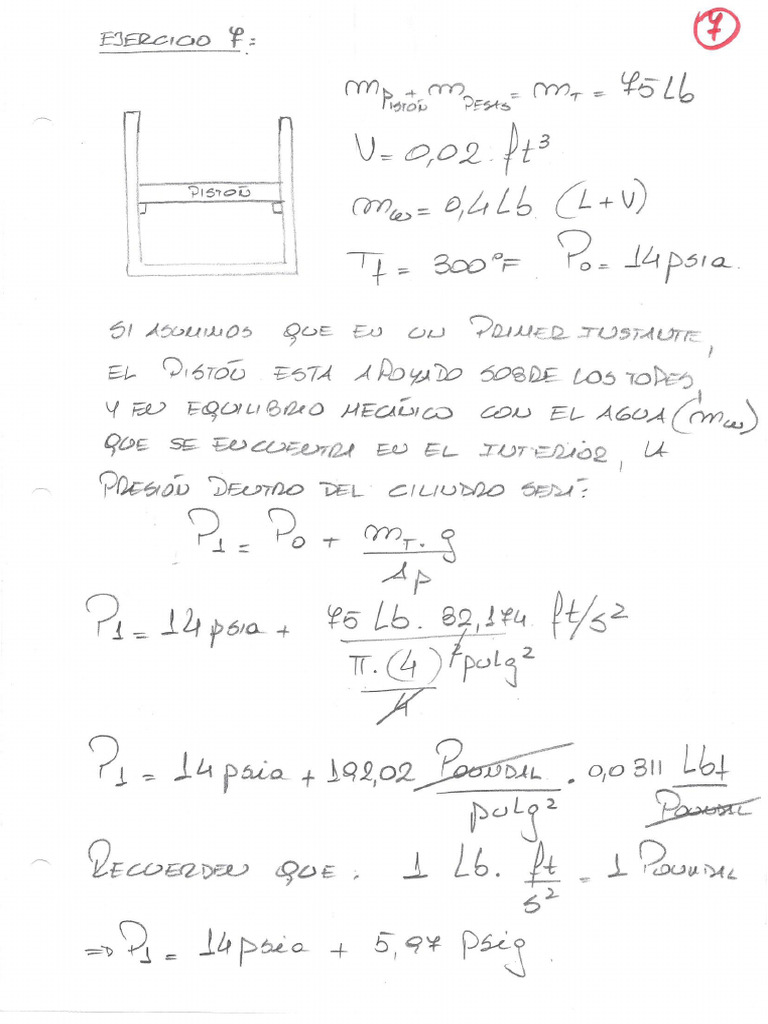 7
EJERCICIO 7:
m PISTÓN + m PESAS = m_T = 75 Lb
V = 0,02 ft³
m_ω = 0,4 Lb (L + V)
T_f = 300 °F P_0 = 14 psia.
PISTÓN
SI ASUMIMOS QUE EN UN PRIMER INSTANTE,
EL PISTÓN ESTA APOYADO SOBRE LOS TOPES,
Y EN EQUILIBRIO MECÁNICO CON EL AGUA (m_ω)
QUE SE ENCUENTRA EN EL INTERIOR, LA
PRESIÓN DENTRO DEL CILINDRO SERÁ:
P_1 = P_0 + m_T . g / A_p
P_1 = 14 psia + 75 Lb . 32,174 ft/s² / π . (4)² pulg² / 4
P_1 = 14 psia + 192,02 Poundal / pulg² . 0,0311 Lbf / Poundal
RECUERDEN QUE : 1 Lb . ft / s² = 1 Poundal
=> P_1 = 14 psia + 5,97 psig.